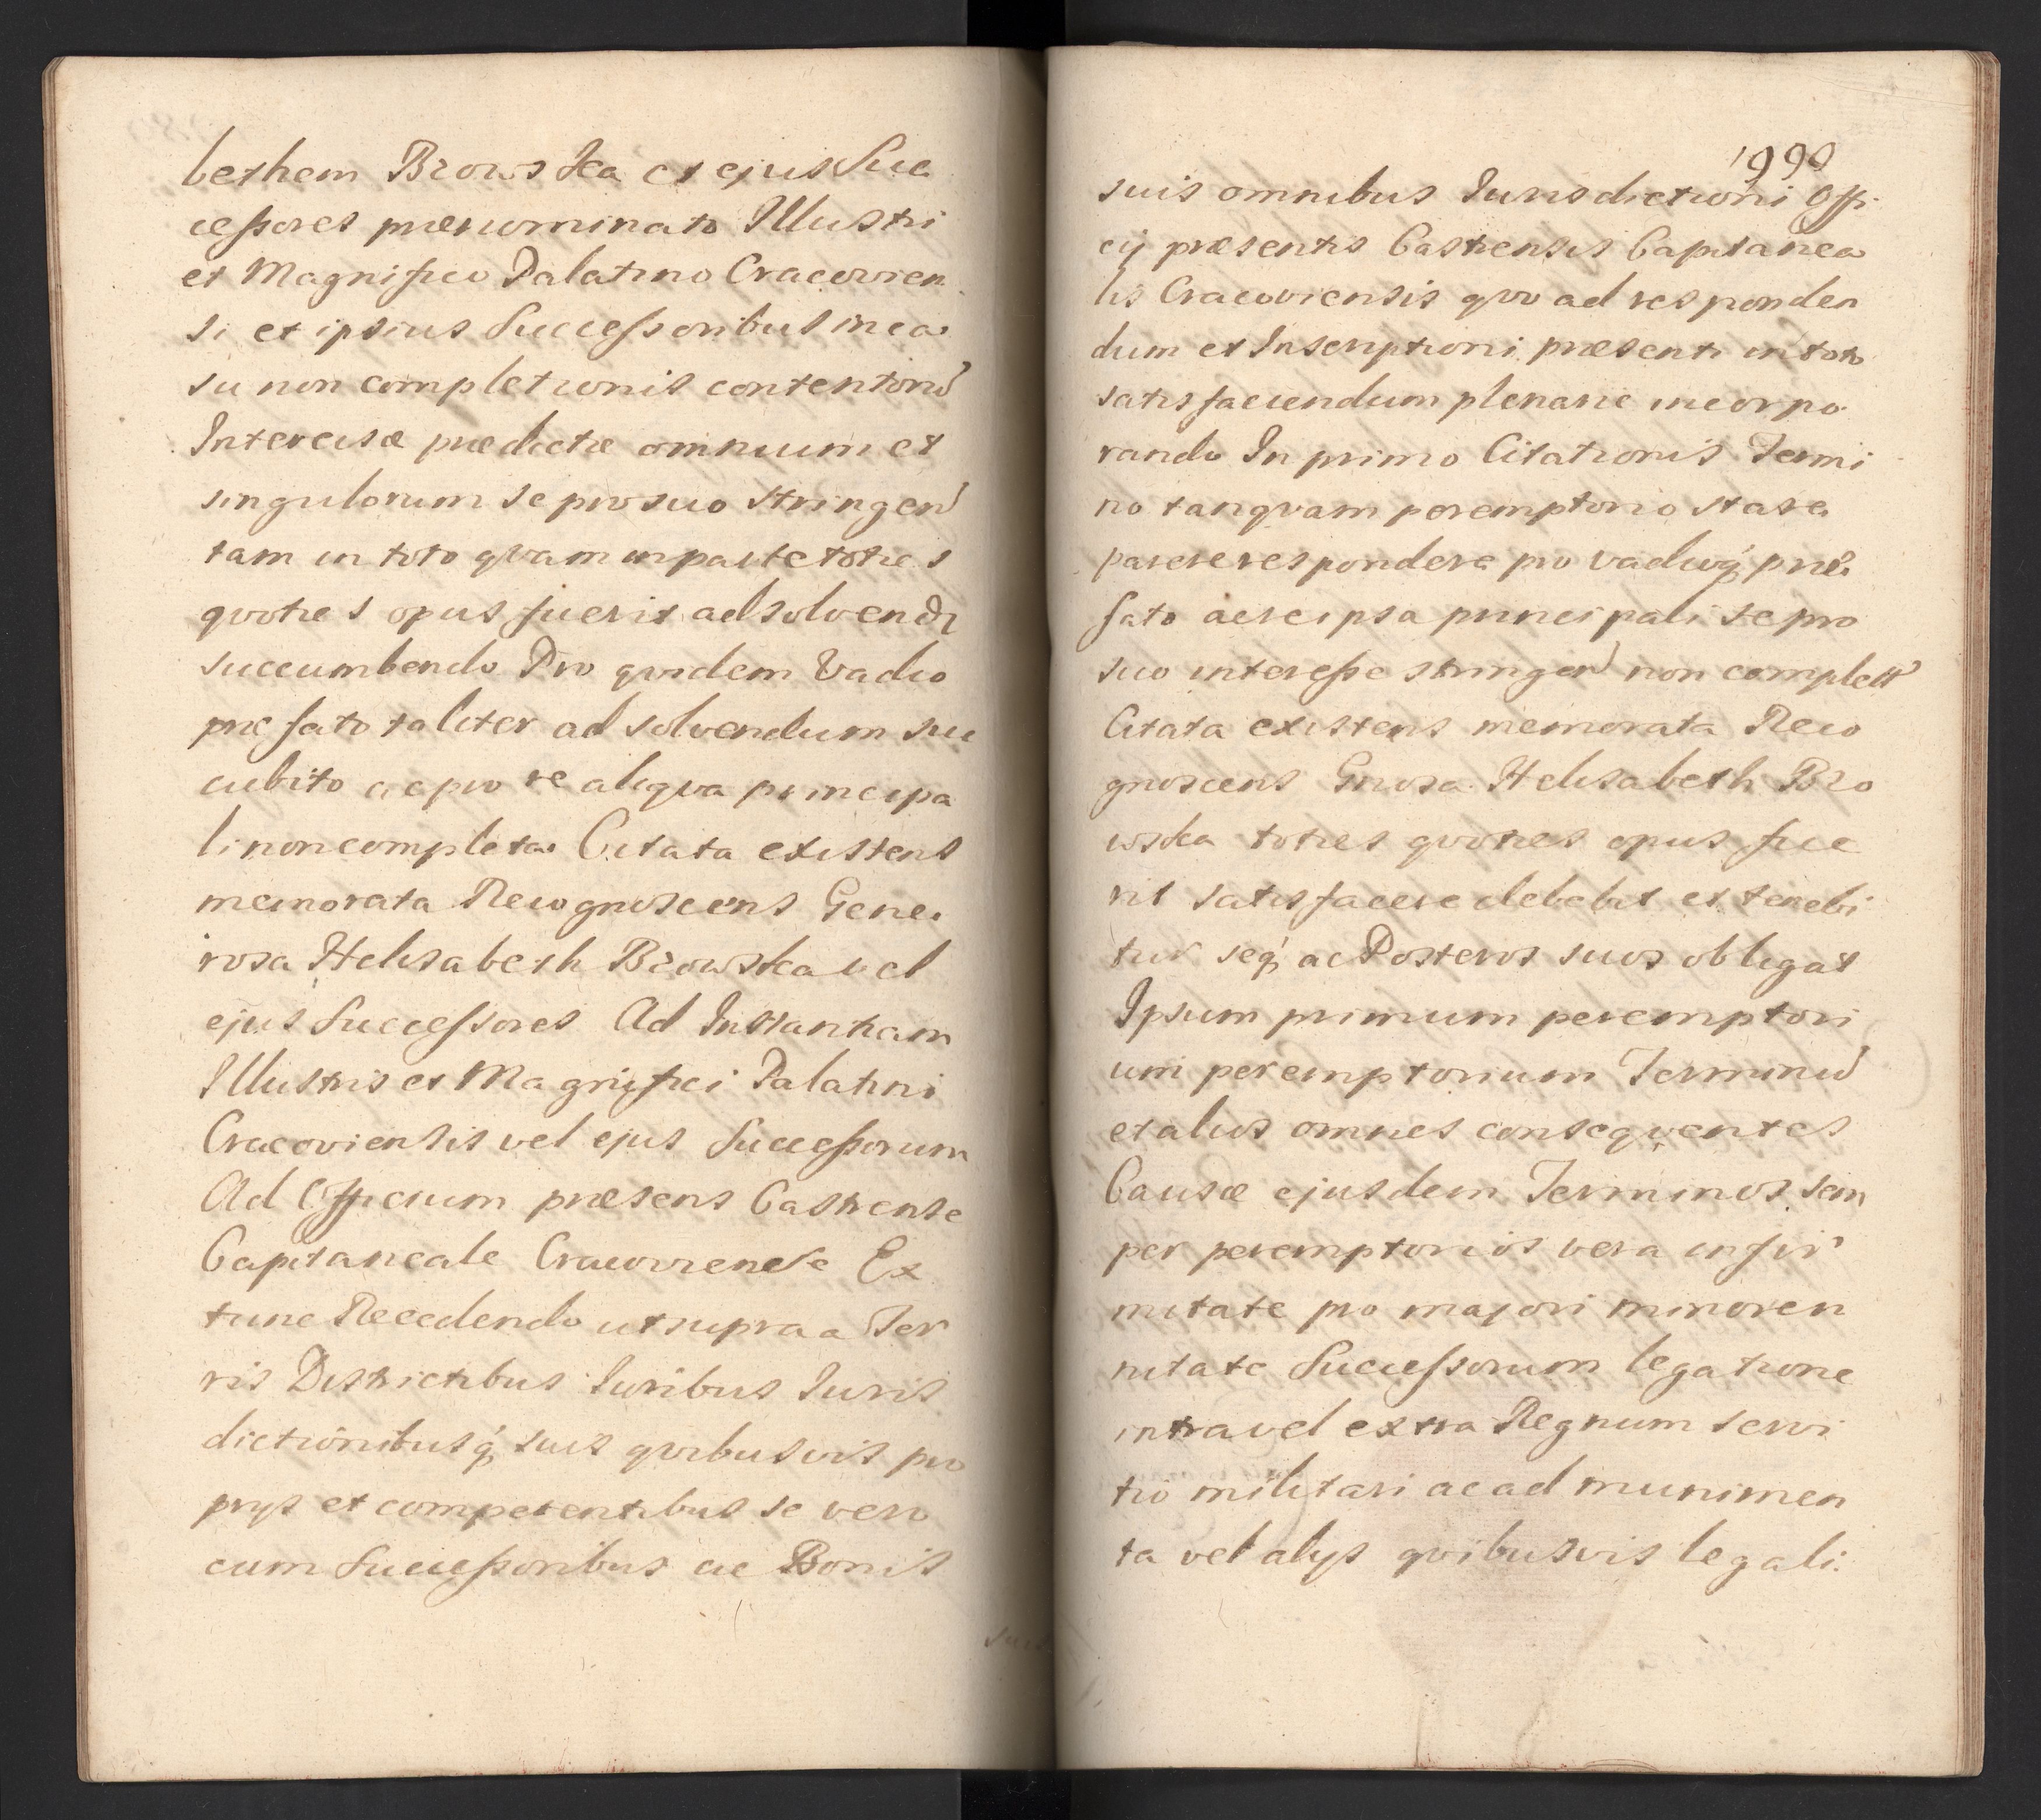 bethem Brows ka et ejus Suc
cessores prænominato Illustri
et Magnifico Palatino Cracovien
si et ipsius Successoribus in ca
su non completionis contentorũ
Intercisæ prædictæ omnium et
singulorum se pro suo stringen
tam in toto qvam in parte toties
qvoties opus fuerit adsolvendi
succumbendo Pro qvidem Vadio
præfato taliter ad solvendum suc
cubito ac pro re aliqva principa
li non completa Citata existens
memorata Recognoscens Gene
rosa Helisabeth Browska vel
ejus Successores Ad Instantiam
Illustris et Magnifici Palatini
Cracoviensis vel ejus Successorum
Ad Officium præsens Castrense
Capitaneale Cracoviense Ex
tunc Recedendo ut supra a Ter
ris Districtibus Iuribus Iuris
dictionibusq́ suis qvibusvis pro
prijs et competentibus se vero
cum Successoribus ac Bonis
1990
suis omnibus Iurisdictioni Offi
cij præsentis Castrensis Capitanea
lis Cracoviensis qvo ad responden
dum et Inscriptioni præsenti in toto
satisfaciendum plenarie incorpo
rando In primo Citationis Termi
no tanqvam peremptorio stare
parere respondere pro vadioq́ præ
fato ac re ipsa principali se pro
suo interesse stringen non complett
Citata existens memorata Reco
gnoscens Gnosa Helisabeth Bro
wska toties qvoties opus fue
rit satisfacere debebit et tenebi
tur seq́ ac Posteros suos obligat
Ipsum primum peremptori
um peremptorium Terminũ
et alios omnes conseqventes
Causæ ejusdem Terminos sem
per peremptorios vera infir
mitate pro majori minoren
nitate Successorum legatione
intra vel extra Regnum servi
tio militari ac ad munimen
ta vel alijs qvibusvis legali